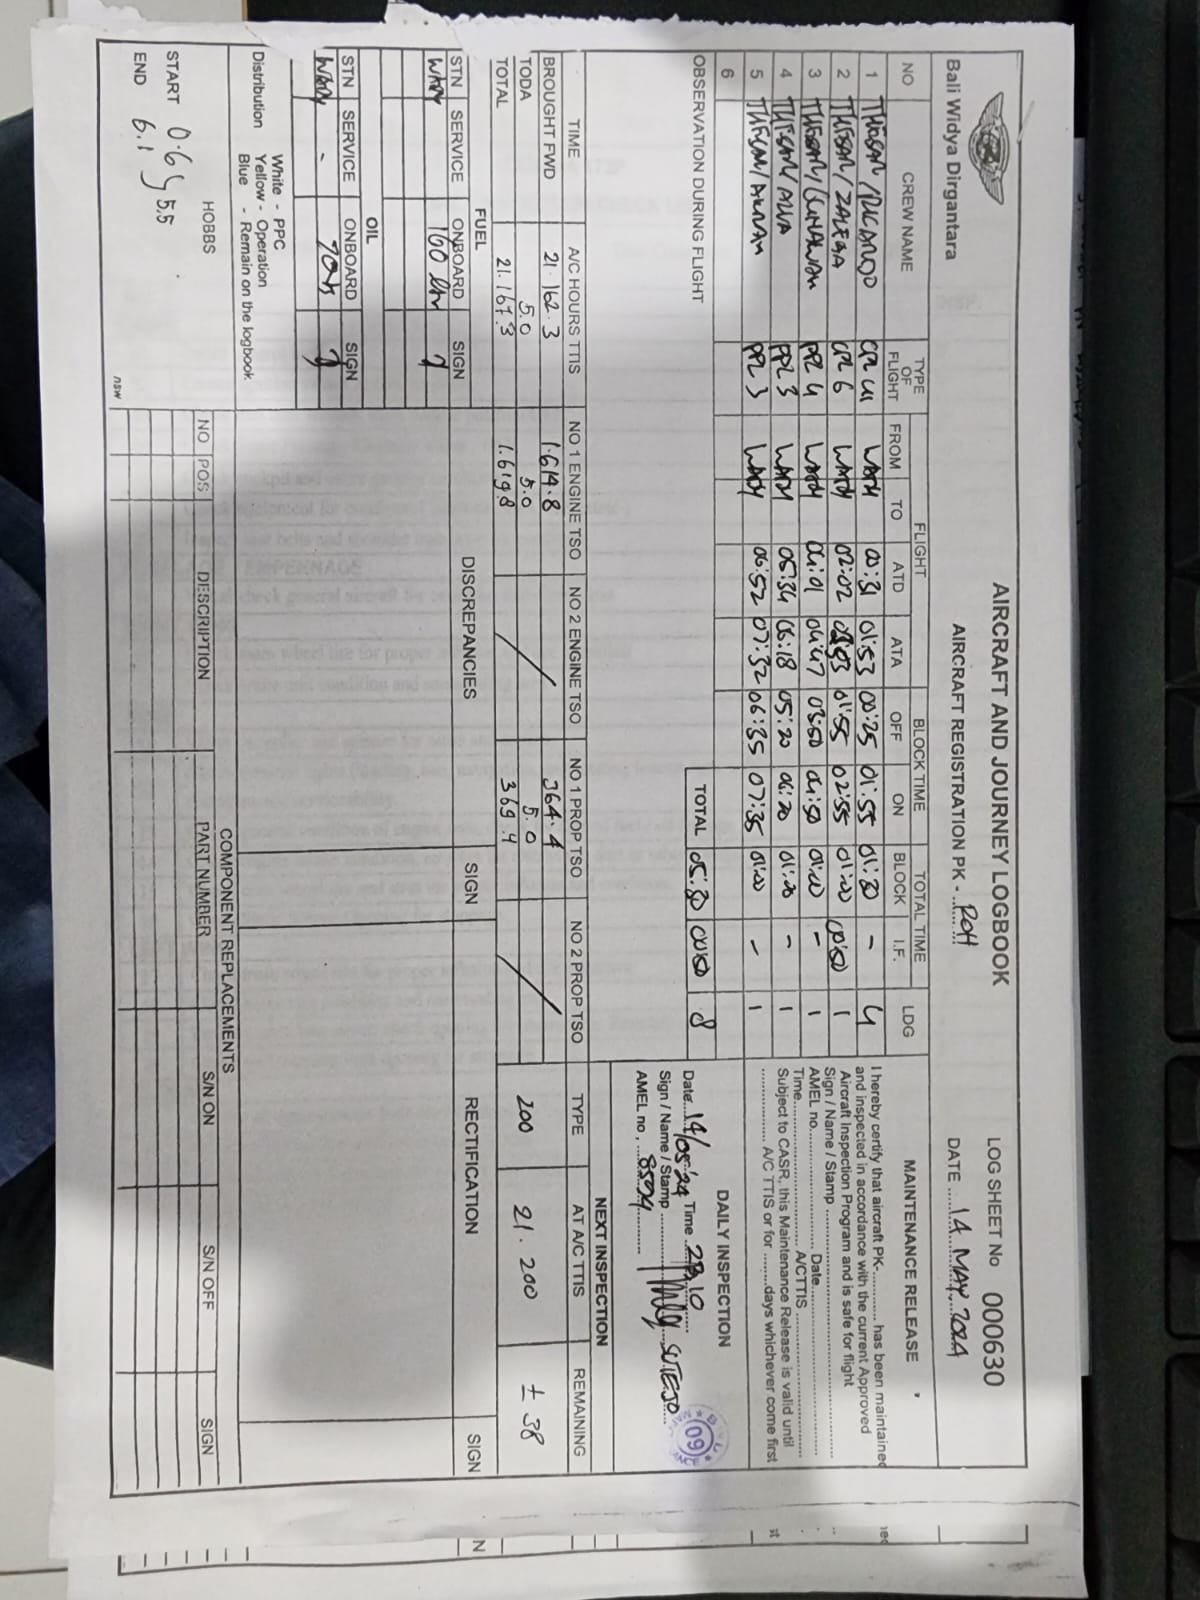 Bali Widya Dirgantara
AIRCRAFT AND JOURNEY LOGBOOK
AIRCRAFT REGISTRATION PK - ROH
LOG SHEET No 000630
DATE 14 MAY 2024
NO CREW NAME TYPE OF FLIGHT FLIGHT BLOCK TIME TOTAL TIME LDG
FROM TO ATD ATA OFF ON BLOCK I.F.
1 00:31 01:53 00:25 01:55 01:30 - 4
2 CPL 6 WADY 02:02 01:55 02:55 01:00 00:50 1
3 PPL 4 WADY 04:01 04:47 03:50 04:50 01:00 - 1
4 PPL 3 WADY 05:34 06:18 05:20 06:20 01:00 - 1
5 PPL 3 WADY 06:52 07:32 06:35 07:35 01:00 - 1
6
TOTAL 05:30 00:50 8
OBSERVATION DURING FLIGHT
MAINTENANCE RELEASE
I hereby certify that aircraft PK-............ has been maintained
and inspected in accordance with the current Approved
Aircraft Inspection Program and is safe for flight
Sign / Name / Stamp
AMEL no. Date
Time A/CTTIS
Subject to CASR, this Maintenance Release is valid until
A/C TTIS or for ........days whichever come first
DAILY INSPECTION
Date 14/05'24 Time 23.10
Sign / Name / Stamp SUTEJO
AMEL no , 8594
09
TIME A/C HOURS TTIS NO 1 ENGINE TSO NO 2 ENGINE TSO NO 1 PROP TSO NO 2 PROP TSO
BROUGHT FWD 21.162.3 1.614.8 364.4
TODA 5.0 5.0 5.0
TOTAL 21.167.3 1.619.8 369.4
NEXT INSPECTION
TYPE AT A/C TTIS REMAINING
200 21.200 ± 38
FUEL
STN SERVICE ONBOARD SIGN
WADY 100 ltr
OIL
STN SERVICE ONBOARD SIGN
WADY -
DISCREPANCIES SIGN RECTIFICATION SIGN
Distribution White - PPC
Yellow - Operation
Blue - Remain on the logbook
HOBBS
START 0.6
5.5
END 6.1
nsw
COMPONENT REPLACEMENTS
NO POS DESCRIPTION PART NUMBER S/N ON S/N OFF SIGN